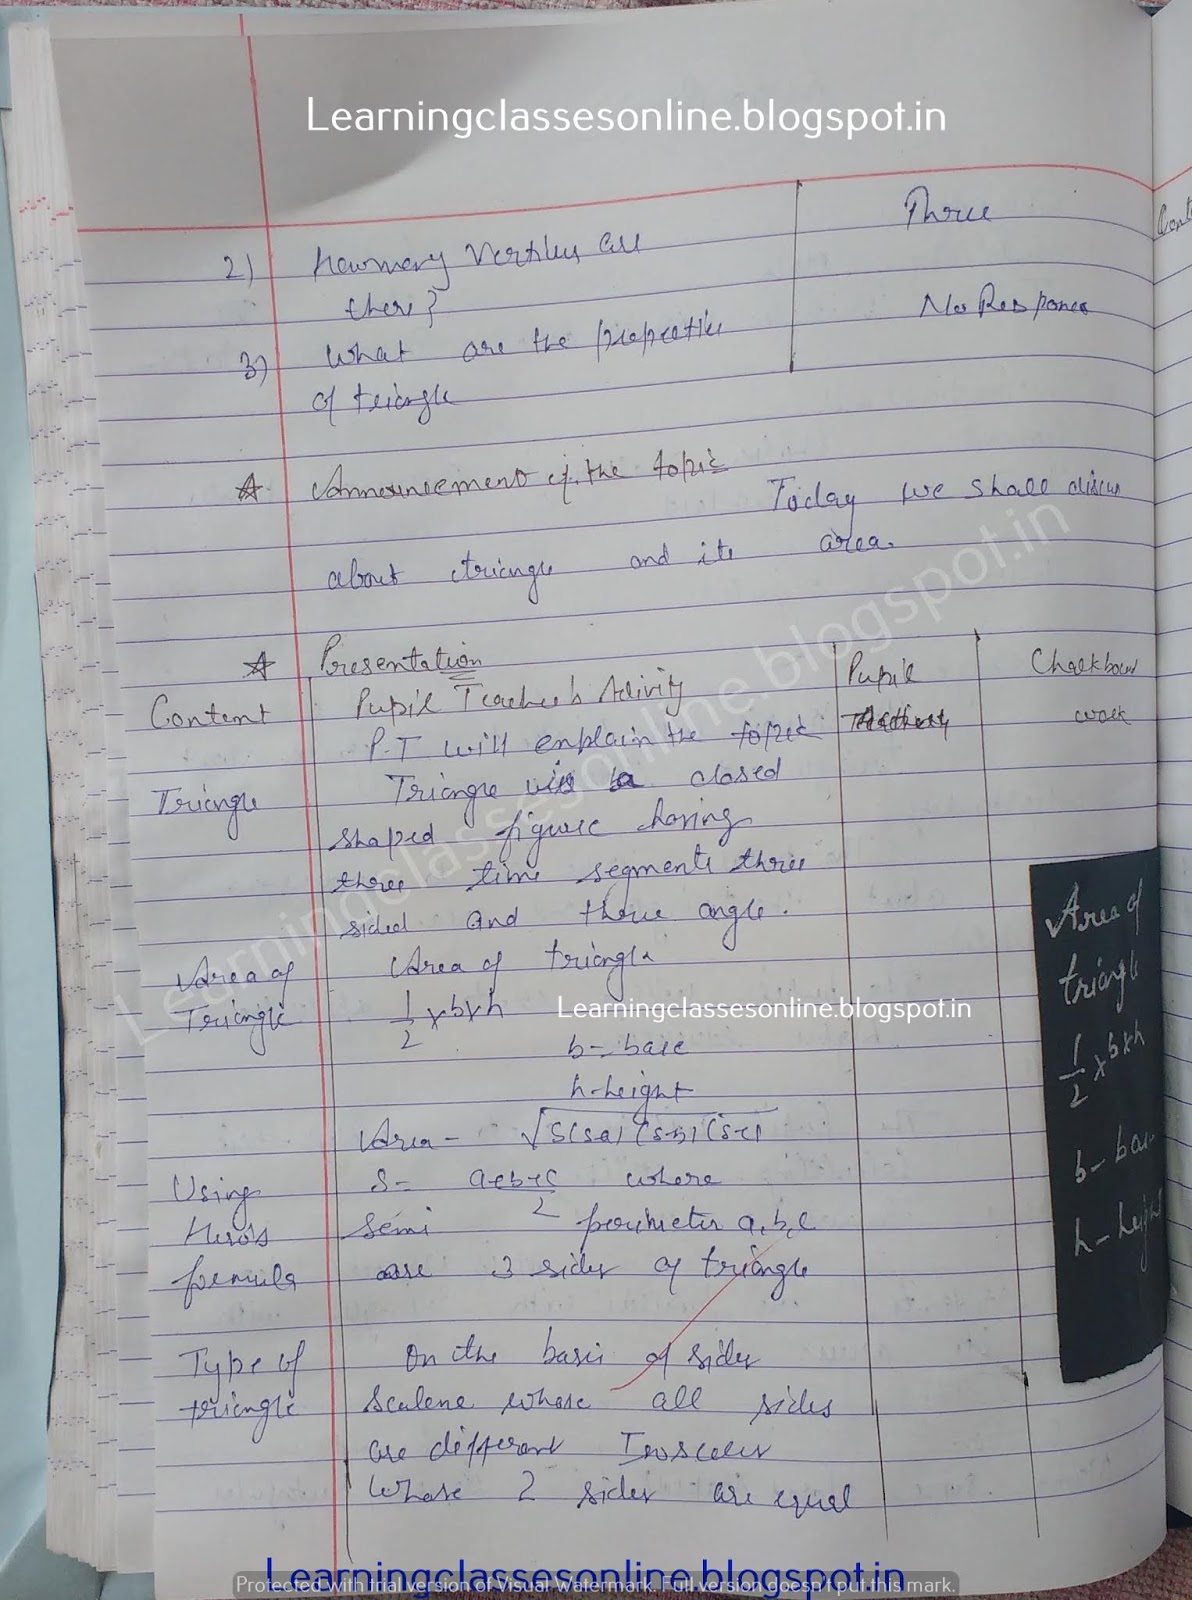 Learningclassesonline.blogspot.in
Three
2) How many vertices are
there?
No Response
3) What are the properties
of triangle
Announcement of the topic
Today we shall discus
about triangle and its area.
Presentation
Content Pupil Teacher's Activity Pupil Chalkboard
P.T will explain the topic work
Triangle Triangle is a closed
shaped figure having
three line segments three
sided and three angle.
Area of Area of triangle
Triangle 1/2 x b x h
Learningclassesonline.blogspot.in
b - base
h - height
Area - √S(s-a) (s-b) (s-c)
Using S - a+b+c/2 where
Hero's semi perimeter a, b, c
formula are 3 sides of triangle
Type of On the basis of sides
triangle Scalene whose all sides
are different Isosceles
Whose 2 sides are equal
Area of
triangle
1/2 x b x h
b - base
h - height
Cont
Learningclassesonline.blogspot.in
Learningclassesonline.blogspot.in
Protected with trial version of Visual Watermark. Full version doesn't put this mark.